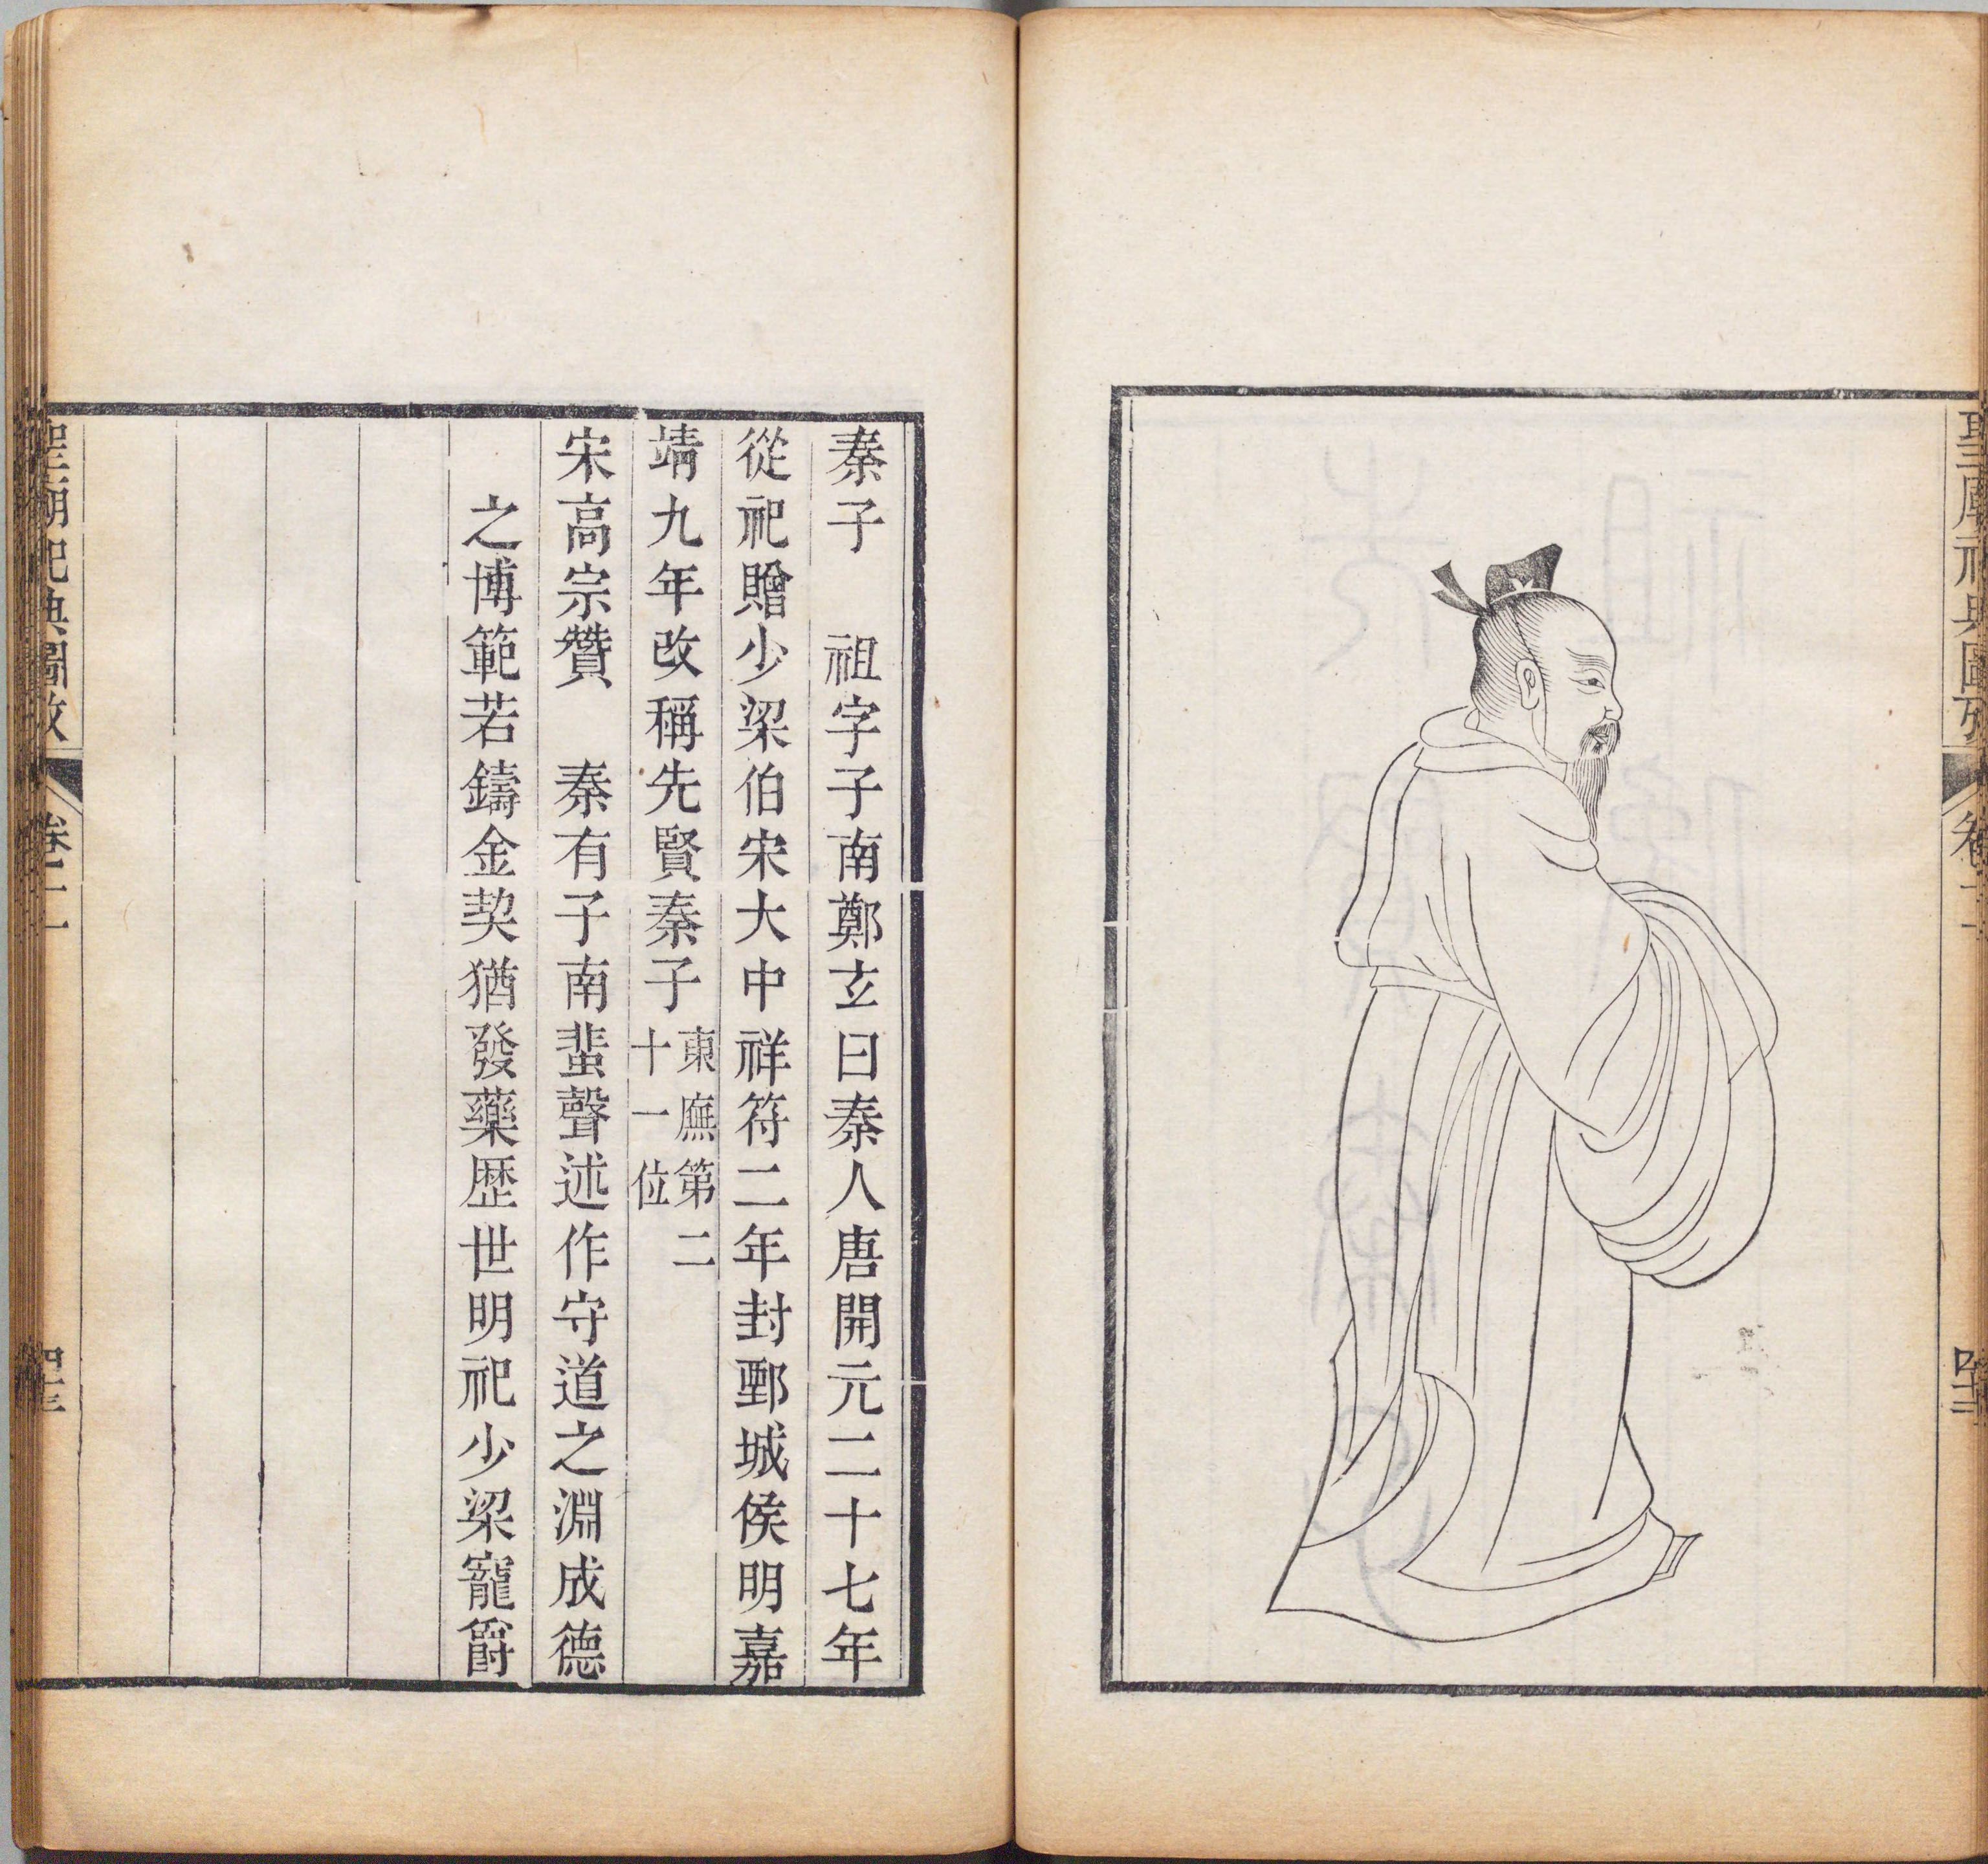 聖廟祀典圖攷
卷二
秦子　祖字子南鄭玄曰秦人唐開元二十七年
從祀贈少梁伯宋大中祥符二年封鄄城侯明嘉
靖九年改稱先賢秦子東廡第二
十一位
宋高宗贊　秦有子南蜚聲述作守道之淵成德
之博範若鑄金契猶發藥歷世明祀少梁寵爵
聖廟祀典圖攷
卷二